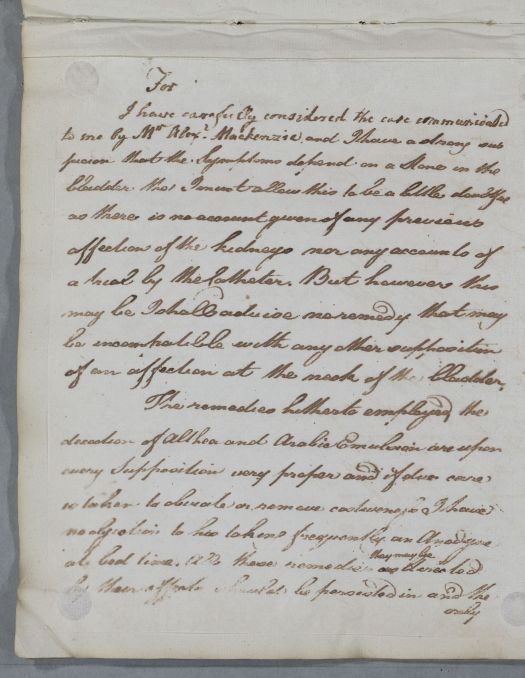 For
I have carefully considered the case communicated
to me by Mr Alexr Mackenzie and I have a strong sus
picion that the Symptoms depend on a Stone in the
bladder tho I must allow this to be a little doubtful
as there is no account given of any previous
affection of the kidneys nor any accounts of
a trial by the Catheter. But however this
may be I shall advise no remedy that may
be incompatible with any other supposition
of an affection at the neck of the bladder.
The remedies hitherto employed the
decoction of Althea and Arabic Emulsion are upon
every Supposition very proper and if due care
is taken to obviate or remove costiveness I have
no objection to his taken frequently an Anodyne
at bed time. these remedies as directed
they may be
by their effects should be persisted in and the
only